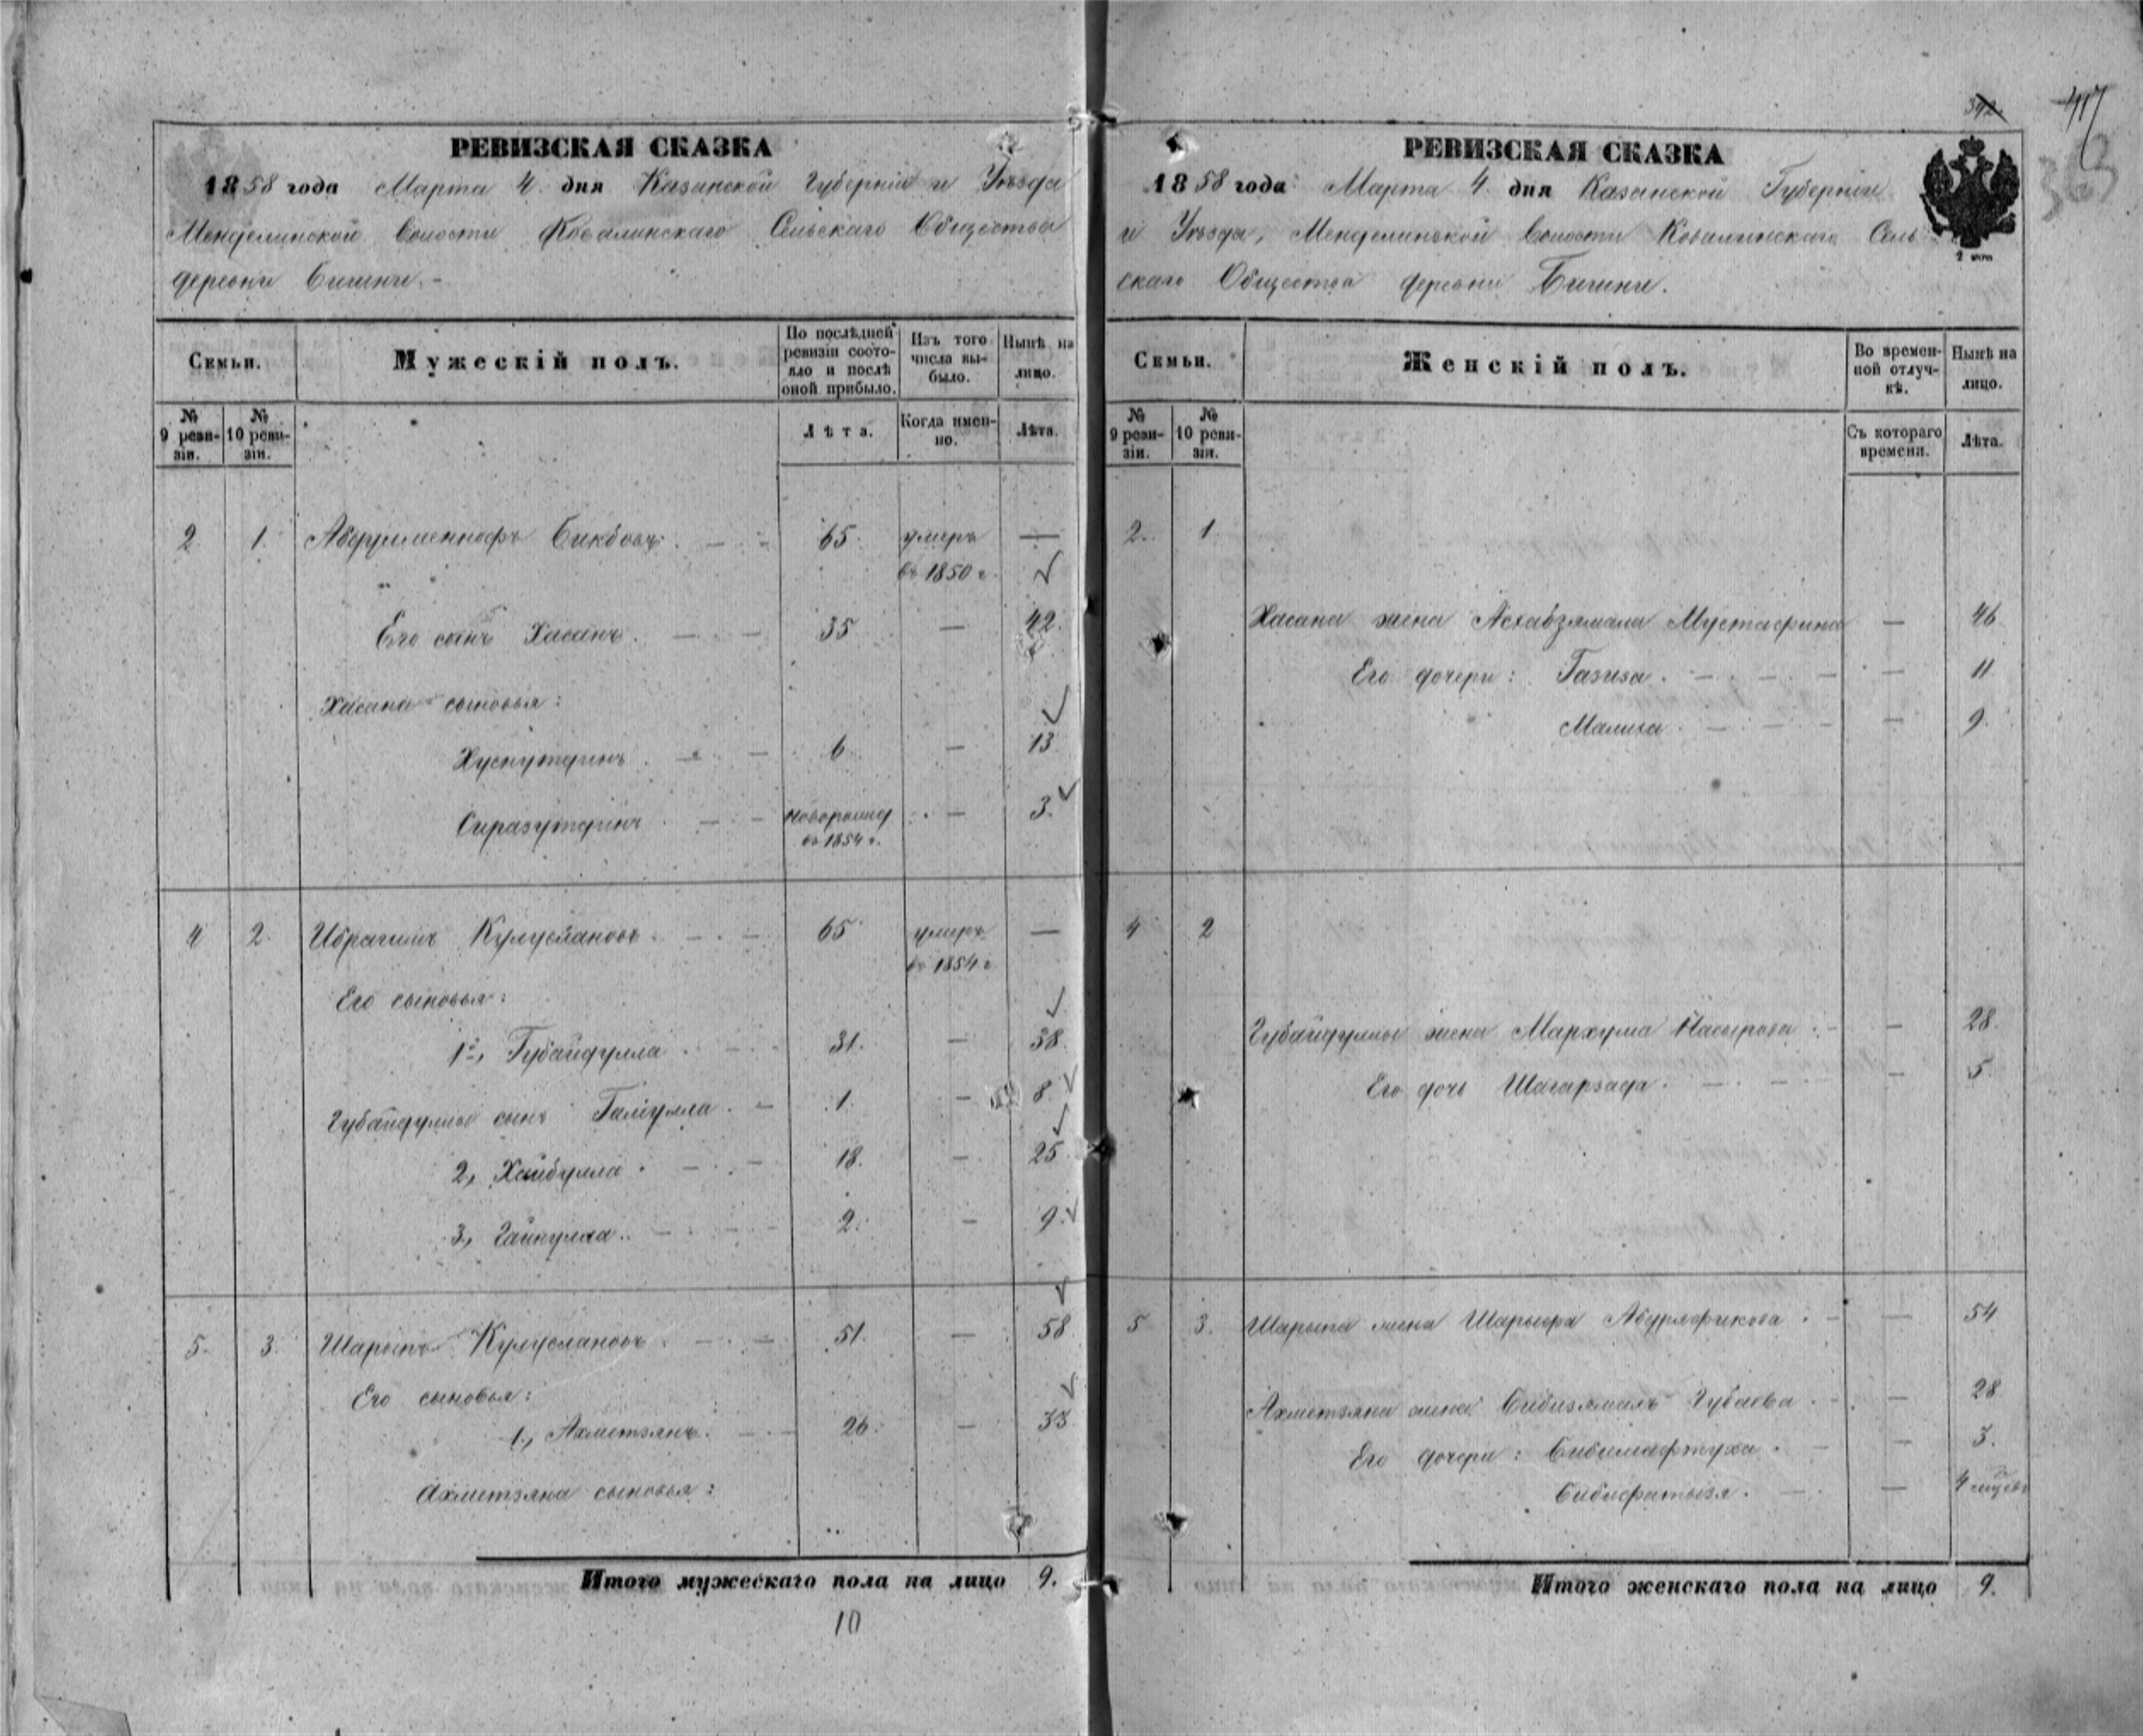 РЕВИЗСКАЯ СКАЗКА
1858 года Марта 4. дня Казанской Губерніи и Уѣзда
Менделинской Волости Ковалинскаго Сельскаго Общества
деревни Бигини.
Семьи.
Мужескій полъ.
По послѣдней ревизіи состояло и послѣ оной прибыло.
Изъ того числа выбыло.
Нынѣ на лицо.
№ 9 ревизіи.
№ 10 ревизіи.
Лѣта.
Когда именно.
Лѣта.
2. 1. Абдулменнафъ Бикбовъ. 65. умеръ —
въ 1850 г.
Его сынъ Хасанъ. 35 — 42.
Хасана сыновья:
Хуснутдинъ 6. — 13
Сиразутдинъ новорожд — 3.
въ 1854 г.
4 2. Ибрагимъ Кулуслановъ 65 умеръ —
въ 1854 г.
Его сыновья:
1й, Губайдулла 31. — 38
Губайдуллы сынъ Галіулла 1. — 8
2, Хайбулла 18. — 25
3, Гайнулла 2. — 9.
5. 3. Шарыпъ Кулуслановъ 51. — 58
Его сыновья:
1., Ахметзянъ. 26. — 33
Ахметзяна сыновья:
Итого мужескаго пола на лицо 9.
10
392
417
363
РЕВИЗСКАЯ СКАЗКА
1858 года Марта 4. дня Казанской Губерніи
и Уѣзда, Менделинской Волости Ковалинскаго Сель-
скаго Общества деревни Бигини.
Семьи.
Женскій полъ.
Во временной отлучкѣ.
Нынѣ на лицо.
№ 9 ревизіи.
№ 10 ревизіи.
Съ котораго времени.
Лѣта.
2. 1
Хасана жена Асхабзямала Мустафина — 46
Его дочери: Газиза — 11
Малиха — 9.
4 2
Губайдуллы жена Мархума Насырова — 28.
Его дочь Шагарзада — 5
5 3. Шарыпа жена Шарыфа Абдулафикова — 54
Ахметзяна жена Бибизямалъ Губаева — 28
Его дочери: Бибимафтуха — 3.
Бибифатыза — 4
Итого женскаго пола на лицо 9.